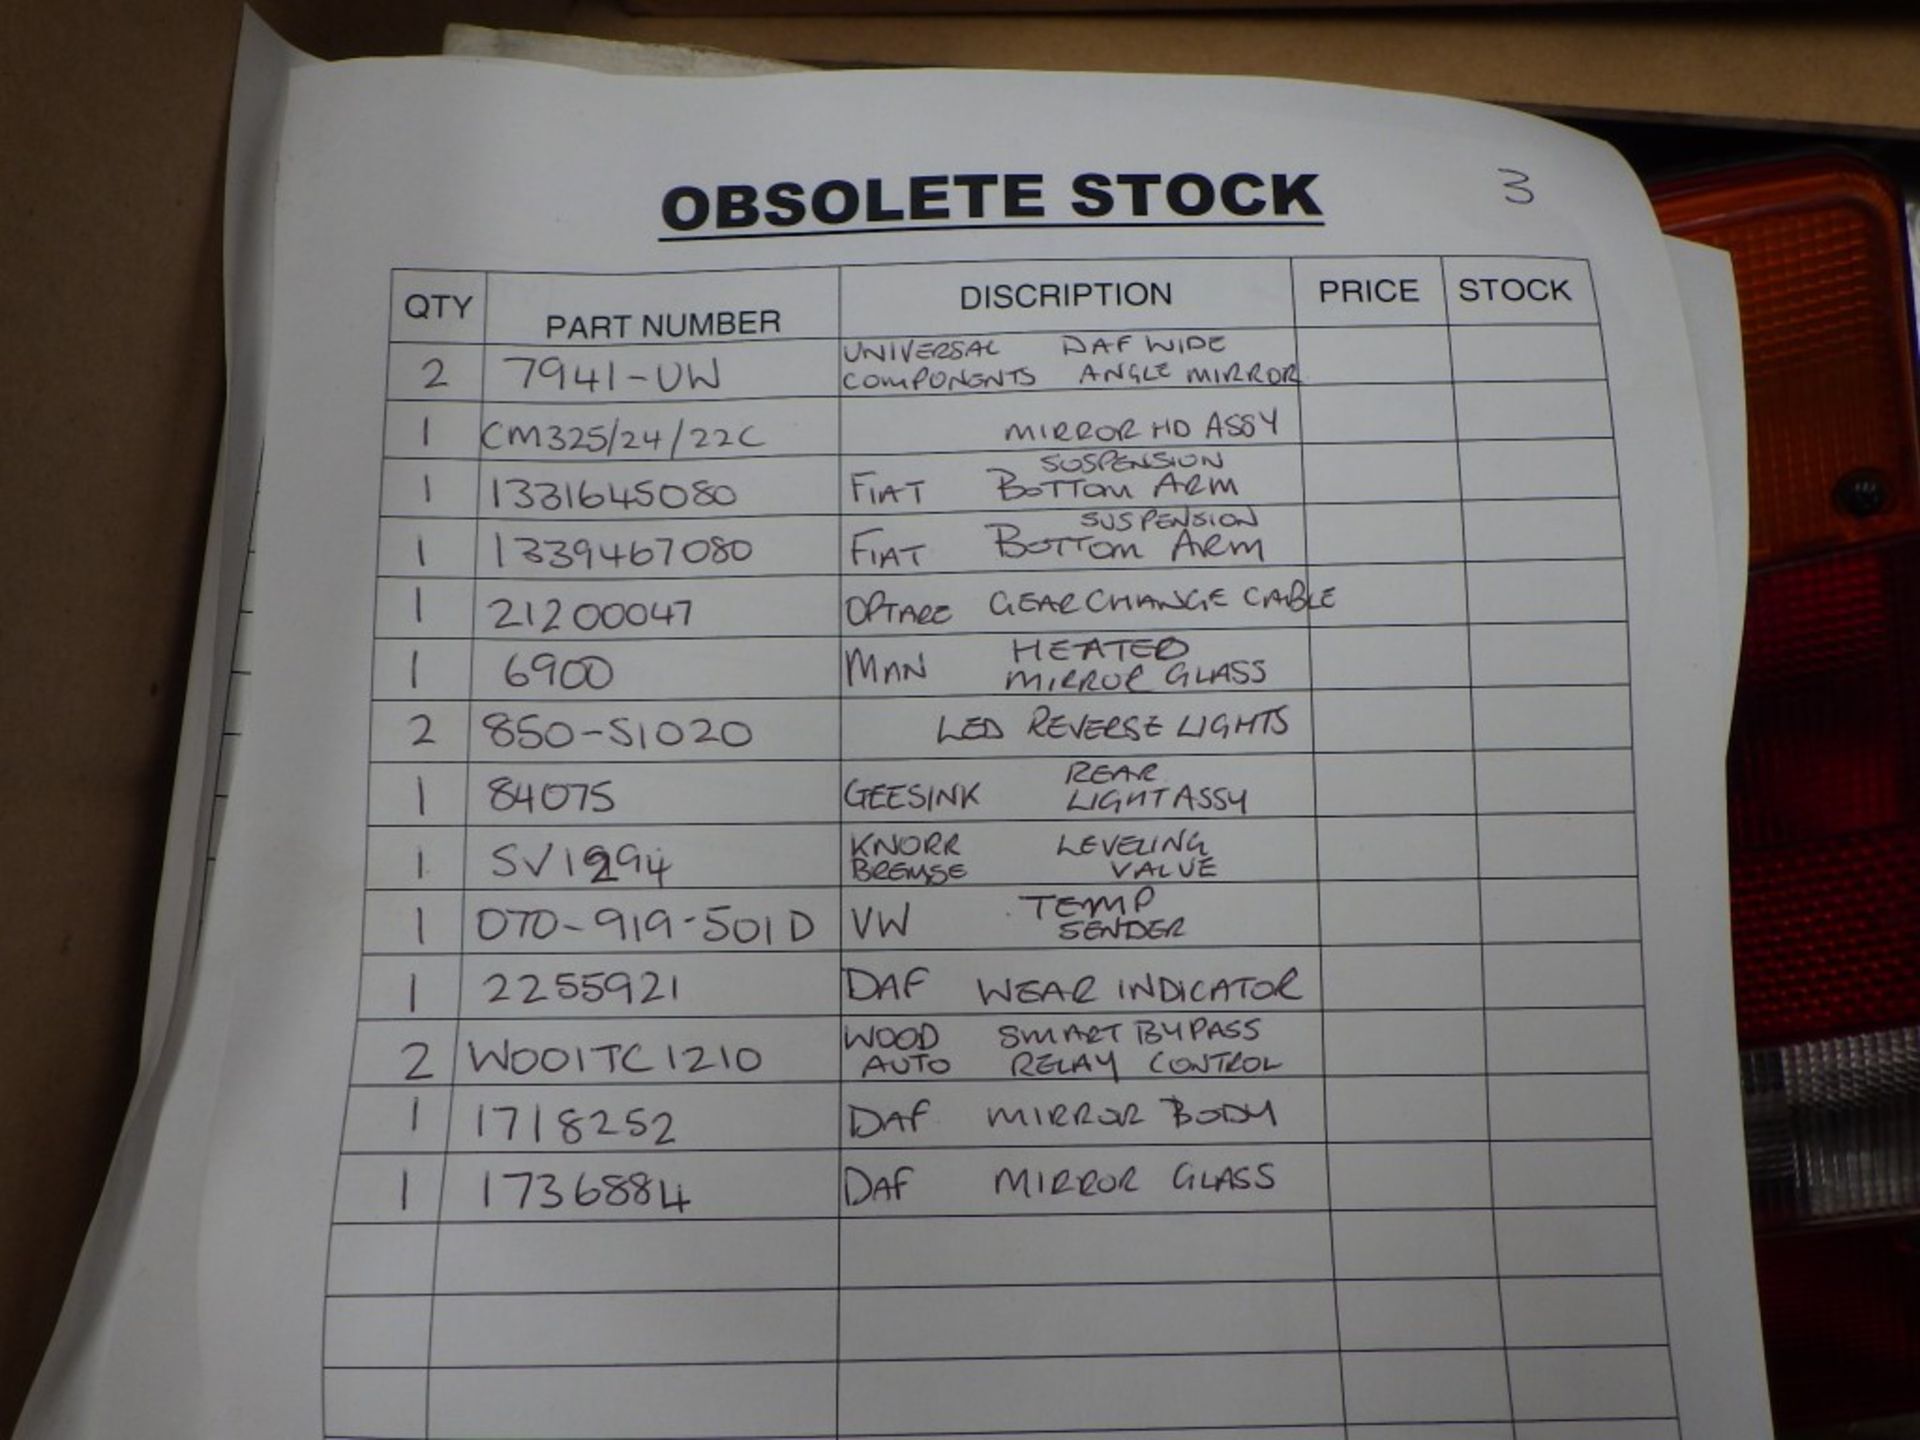 OBSOLETE STOCK 3
QTY PART NUMBER DISCRIPTION PRICE STOCK
2 7941-UW UNIVERSAL COMPONENTS DAF WIDE ANGLE MIRROR
1 CM325/24/22C MIRROR HD ASSY
1 1331645080 FIAT SUSPENSION BOTTOM ARM
1 1339467080 FIAT SUSPENSION BOTTOM ARM
1 21200047 OPTARE GEAR CHANGE CABLE
1 6900 MAN HEATED MIRROR GLASS
2 850-S1020 LED REVERSE LIGHTS
1 84075 GEESINK REAR LIGHT ASSY
1 KNORR BREMSE LEVELING VALVE
1 070-919-501D VW TEMP SENDER
1 2255921 DAF WEAR INDICATOR
2 WOO1TC1210 WOOD AUTO SMART BYPASS RELAY CONTROL
1 1718252 DAF MIRROR BODY
1 1736884 DAF MIRROR GLASS